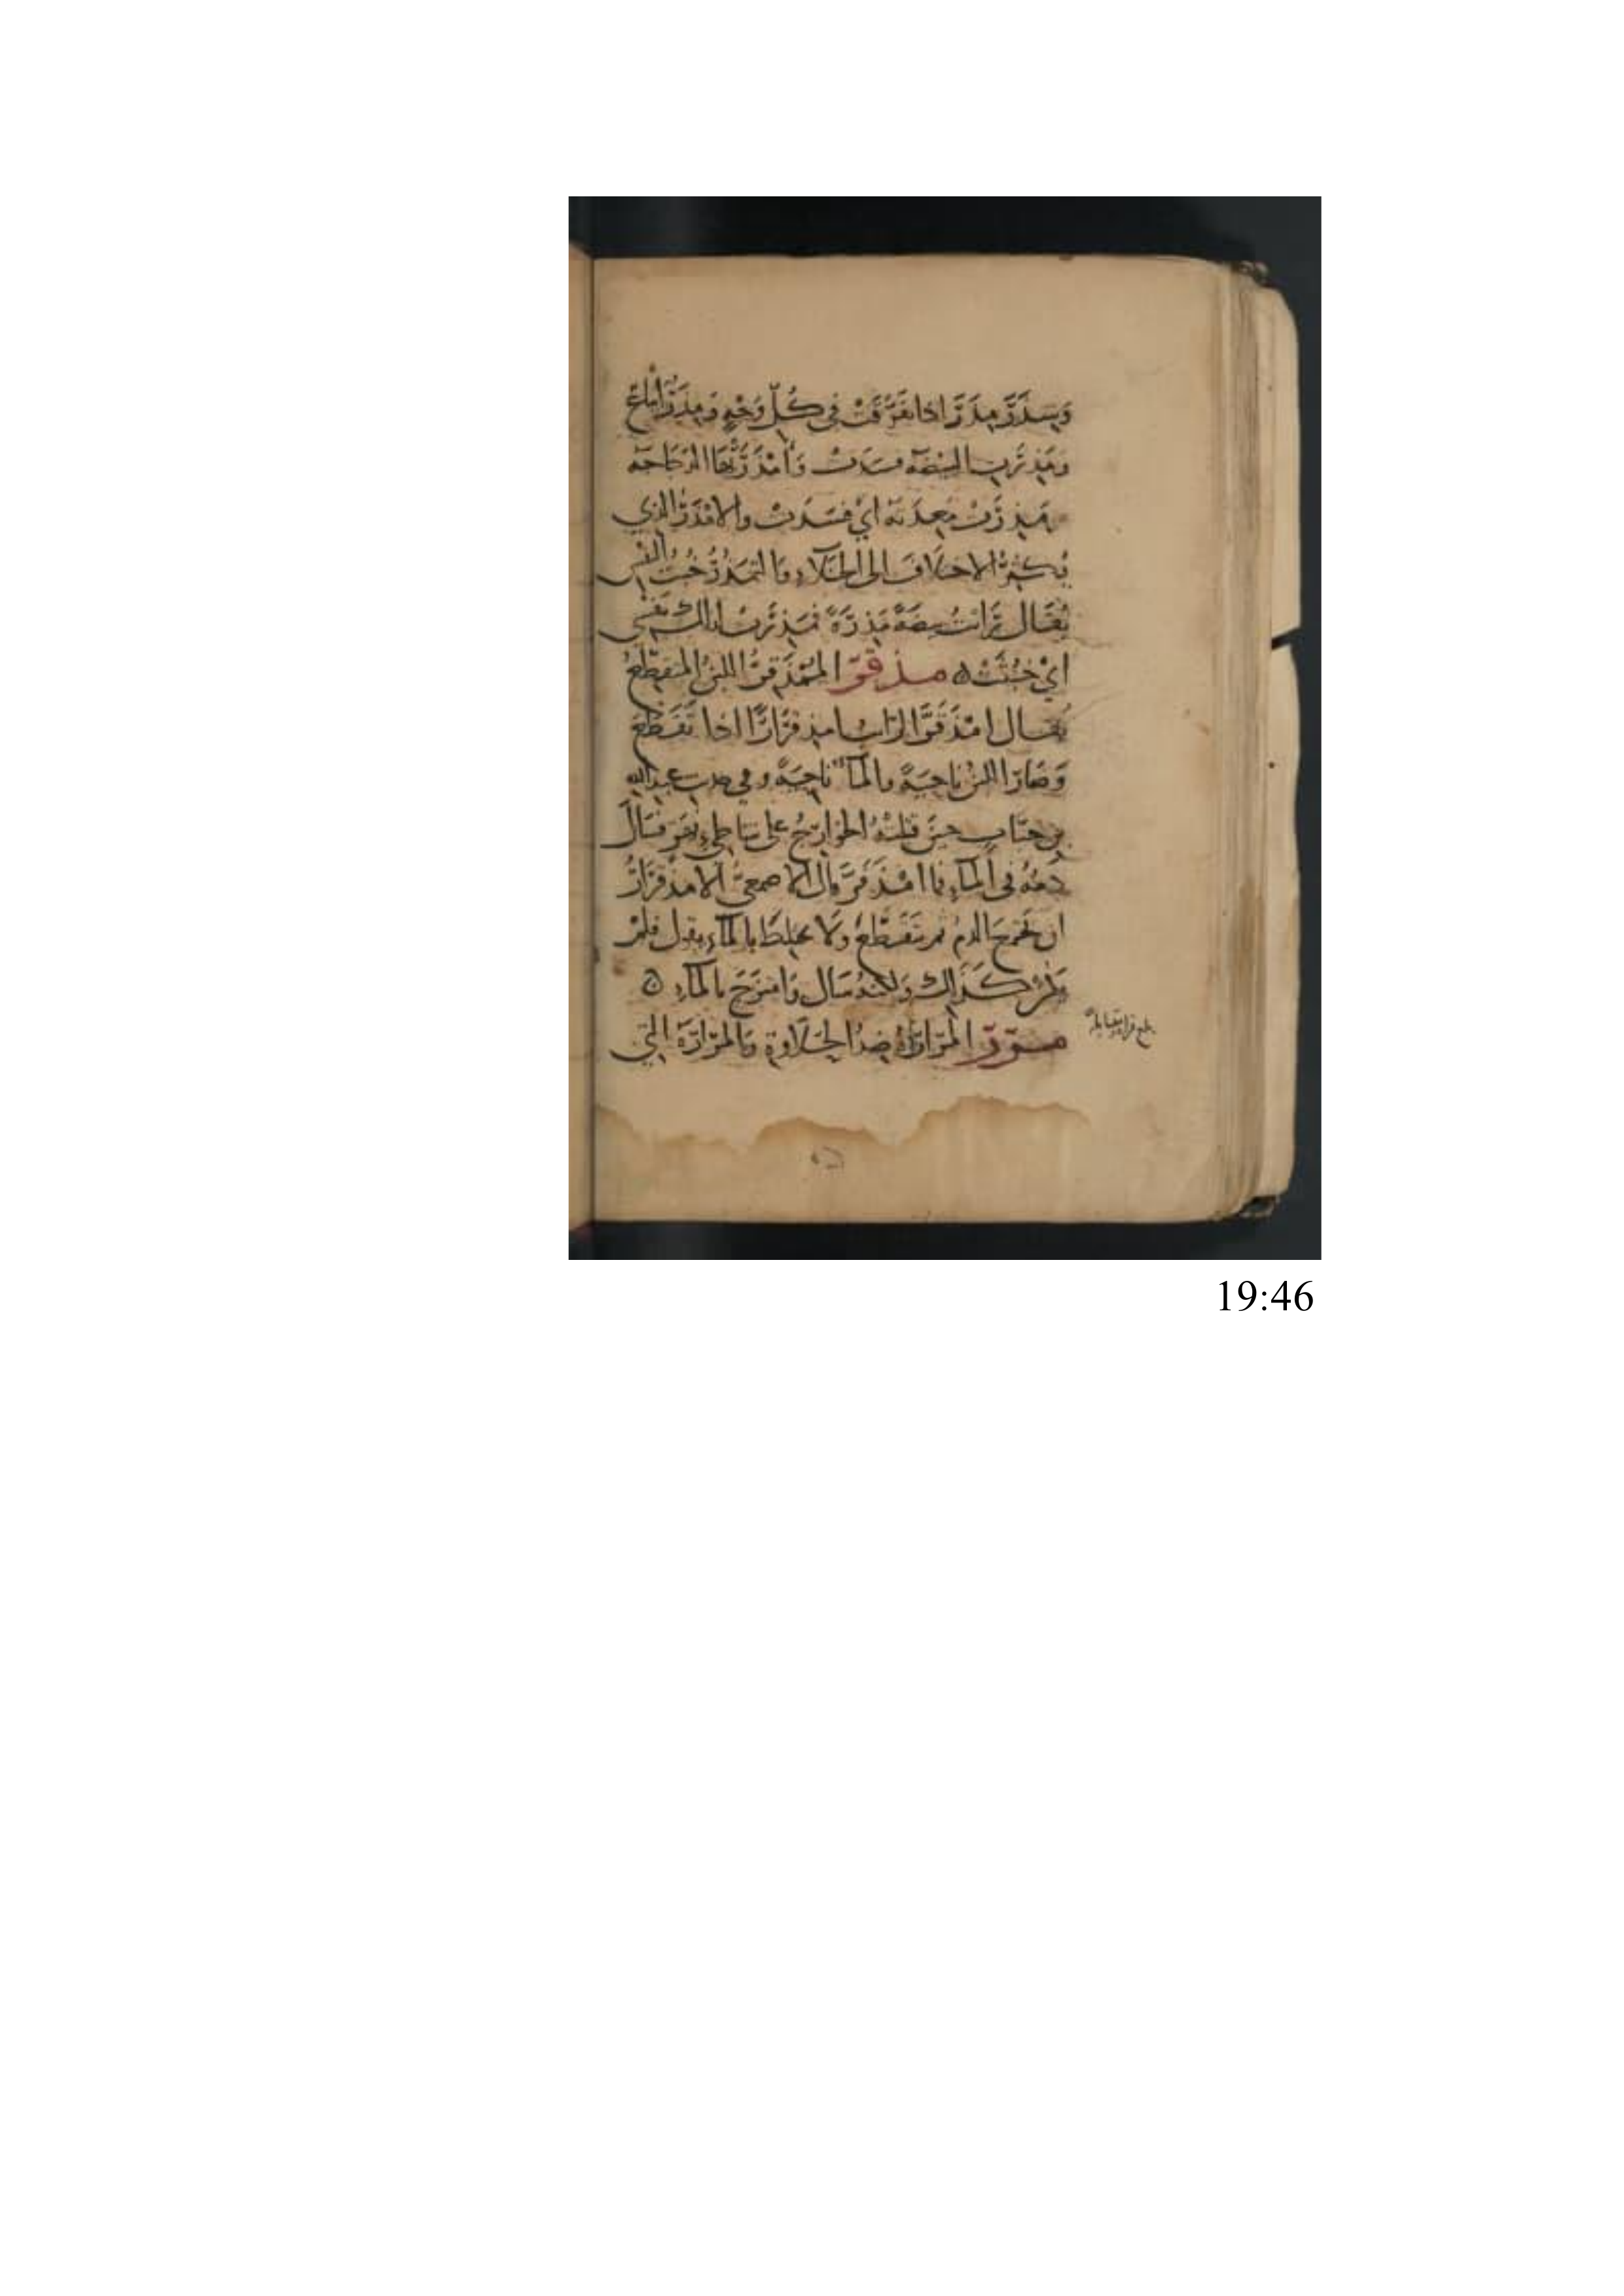 وَشِذَرَ مِذَرَ اذا تفَرَّقَتْ في كُلّ وَجْهٍ وَمِذَرَ اتباعٌ
وَمَذِرَتِ البيْضَة فسَدَت وَأَمْذَرَتْهَا الدجَاجَة
وَمَذِرَتْ مَعِدَته اي فسَدَتْ والامْذَرُ الذي
يُكثِرُ الاختلاَفَ الى الخلآءِ وَالتمَذُّرُ خُبْثُ النفْس
يُقَال رَأيْتُ بيضَةً مَذِرَةً فمَذِرَتْ لذلك نفْسي
ايْ خبُثَتْ ه مذقر المُمْذَقِرُّ اللبَنُ المتقَطّعُ
يُقَال امْذَقَرَّ الرّائبُ امذِقْرَارًا اذا تَقَطَّعَ
وَصَارَ اللبَنُ نَاحِيَةً والمآءُ ناحِيَةً وفي حديث عبد الله
بن خبّاب حينَ قتلَتْهُ الخوَارجُ على شاطئِ نهَرٍ فسَالَ
دمُهُ في المآءِ فما امْذَقَرَّ قال الاصمعيّ الامذقرَارُ
ان يَجْتمِعَ الدمُ ثم يتَقَطَّعَ وَلاَ يختلِطَ بالمآءِ يقول فلمْ
يكُنْ كَذلك وَلكنهُ سَال وَامتزَجَ بالمآءِ ه
مرر المَرَارَةُ ضدُّ الحَلاَوةِ وَالمرَارَة التي
بلغ قراءة ومقابلة
19:46